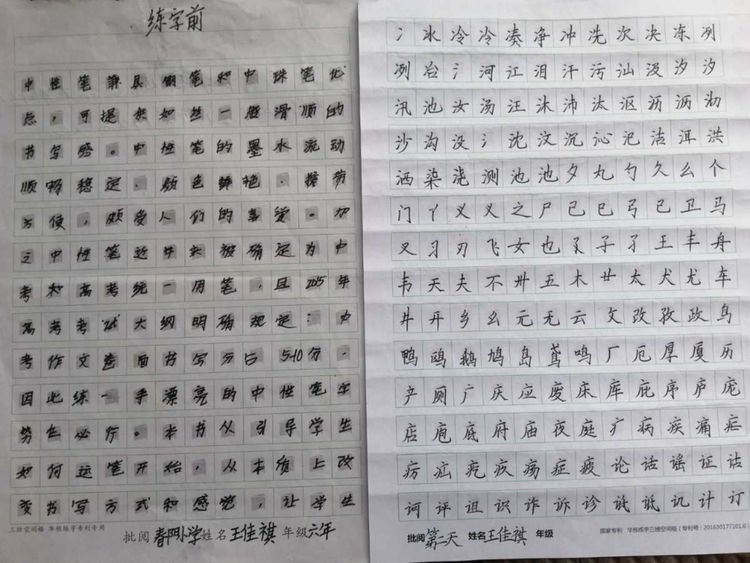 练字前
中性笔兼具钢笔和中珠笔优
点，可提供如丝一般滑顺的
书写感。中性笔的墨水流动
顺畅稳定，颜色鲜艳，携带
方便，颇受人们的喜爱。加
之中性笔近年来被确定为中
考和高考统一用笔，且2015年
高考考试大纲明确规定：中
考作文卷面书写分占5-10分，
因此练一手漂亮的中性笔字
势在必行。本书从引导学生
如何运笔开始，从本质上改
变书写方式和感觉，让学生
三维空间格 华根练字专利专用
批阅 春阳小学 姓名 王佳祺 年级 六年
冫冰冷冷凑净冲冼次决冻冽
冽冶氵河江泪汗污汕汲汐汐
汛池汝汤汪沐沛汰沤沥汹泐
沙沟没氵沈汶沉沁汜洁洱洪
洒染浇测池池夕丸勺久么个
门丫义义之尸己巳弓已卫马
叉习刃飞女也孑子孑王丰舟
韦天夫不卅五木廿太犬龙车
井开乡幺元无云文改孜政鸟
鸭鸥鹅鸠岛鸢鸣厂厄厚厦历
产厕广庆应废床库庇序庐庞
店庖底府庙夜庭疒病疾痛疟
疠疝疙疾疡症疲论话谣证诂
诃评诅识诈诉诊诋诋讥计订
批阅 第二天 姓名 王佳祺 年级
国家专利 华根练字三维空间格（专利号：201630177101.6）